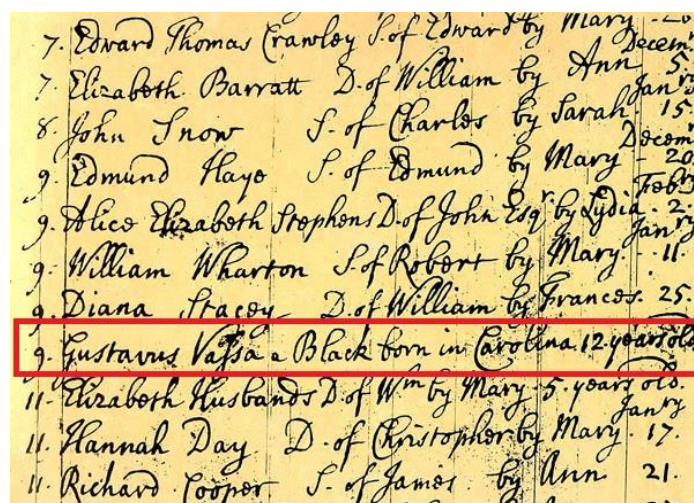 7. Edward Thomas Crawley S. of Edward by Mary - 20
Decemr
7. Elizabeth Barratt D. of William by Ann 5.
Janry
8. John Snow S. of Charles by Sarah 15.
Decem
9. Edmund Haye S. of Edmund by Mary - 20
Febry
9. Alice Elizabeth Stephens D. of John Esqr by Lydia. 2.
Janry
9. William Wharton S. of Robert by Mary. - 11.
9. Diana Stacey D. of William by Frances. 25.
9. Gustavus Vassa a Black born in Carolina 12 years old
11. Elizabeth Husbands D. of Wm by Mary. 5. years old.
Janry
11. Hannah Day D. of Christopher by Mary. 17.
11. Richard Cooper S. of James. by Ann 21.